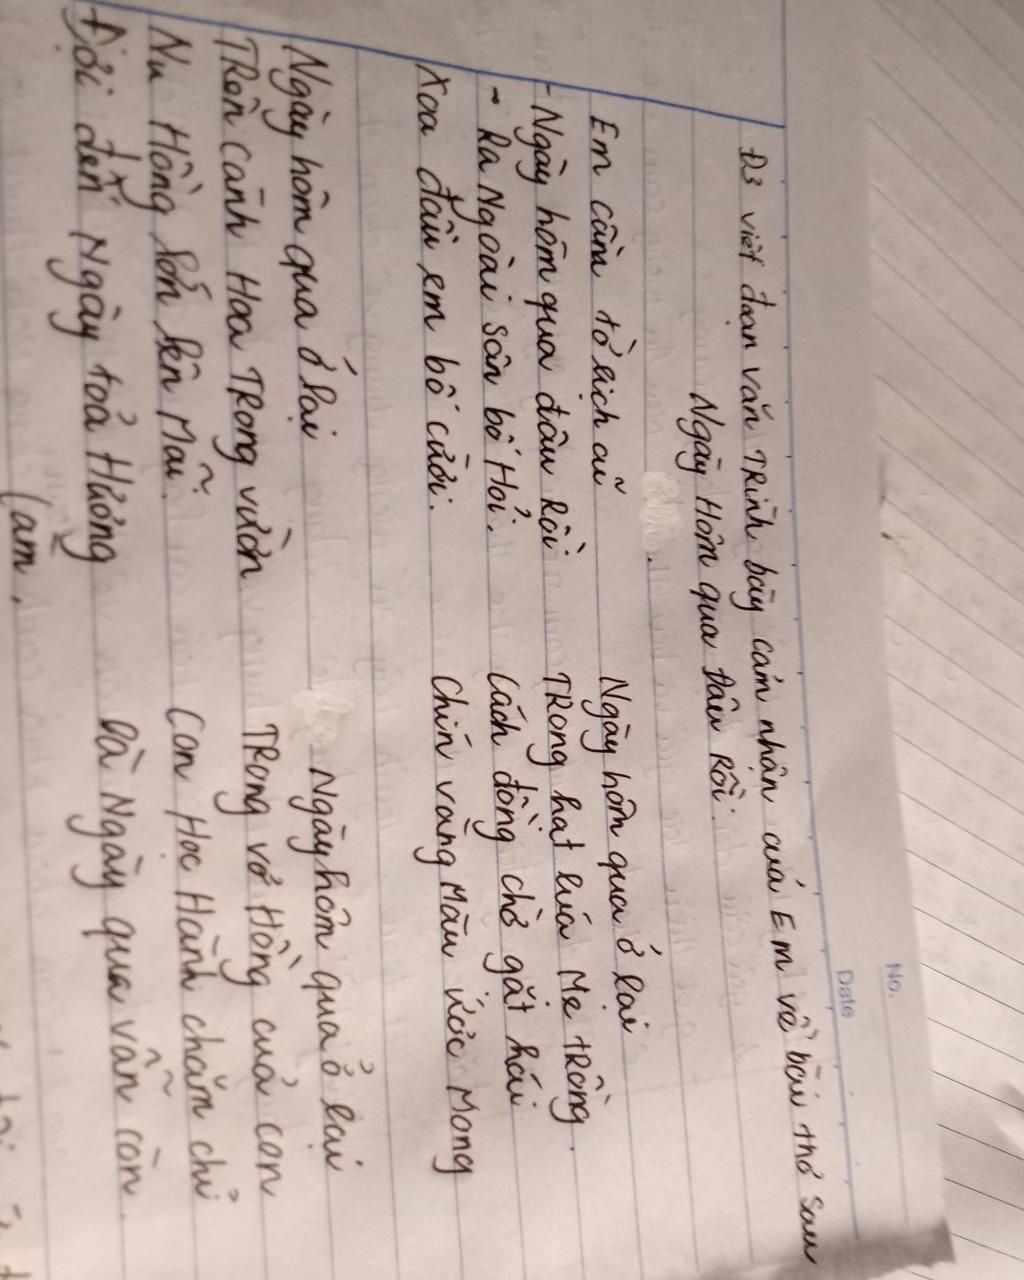 No.
Date
Đ3 viết đoạn văn TRình bày cảm nhận của Em về bài thơ sau
Ngày Hôm qua đâu Rồi.
Em cầm tờ lịch cũ
- Ngày hôm qua đâu Rồi
- Ra Ngoài sân bố Hỏi.
Xoa đầu em bố cười.
Ngày hôm qua ở lại
TRong hạt lúa Mẹ tRồng.
Cánh đồng chờ gặt hái
Chín vàng Màu ước Mong
Ngày hôm qua ở lại
TRên cành Hoa TRong vườn
Nụ Hồng lớn lên Mãi.
Đợi đến Ngày toả Hương
Ngày hôm qua ở lại
TRong vở Hồng của con
Con Học Hành chăm chỉ
Là Ngày qua vẫn còn.